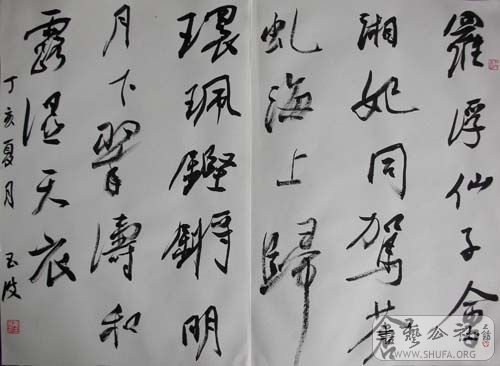 羅浮仙子會
湘妃同駕蒼
虬海上歸
環珮鏗鏘明
月下翠濤和
露溼天衣
丁亥夏月 玉波
WWW.SHUFA.ORG